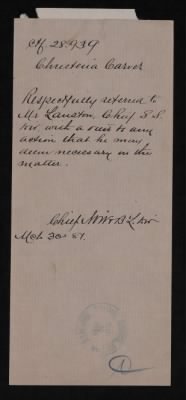 Ctf. 28.939
Christena Carver
Respectfully referred to
Mr Lanston, Chief S. S.
Div. with a view to any
action that he may
deem necessary in the
matter.
Chief N. W & B. L. Div
Mch 30" 87.